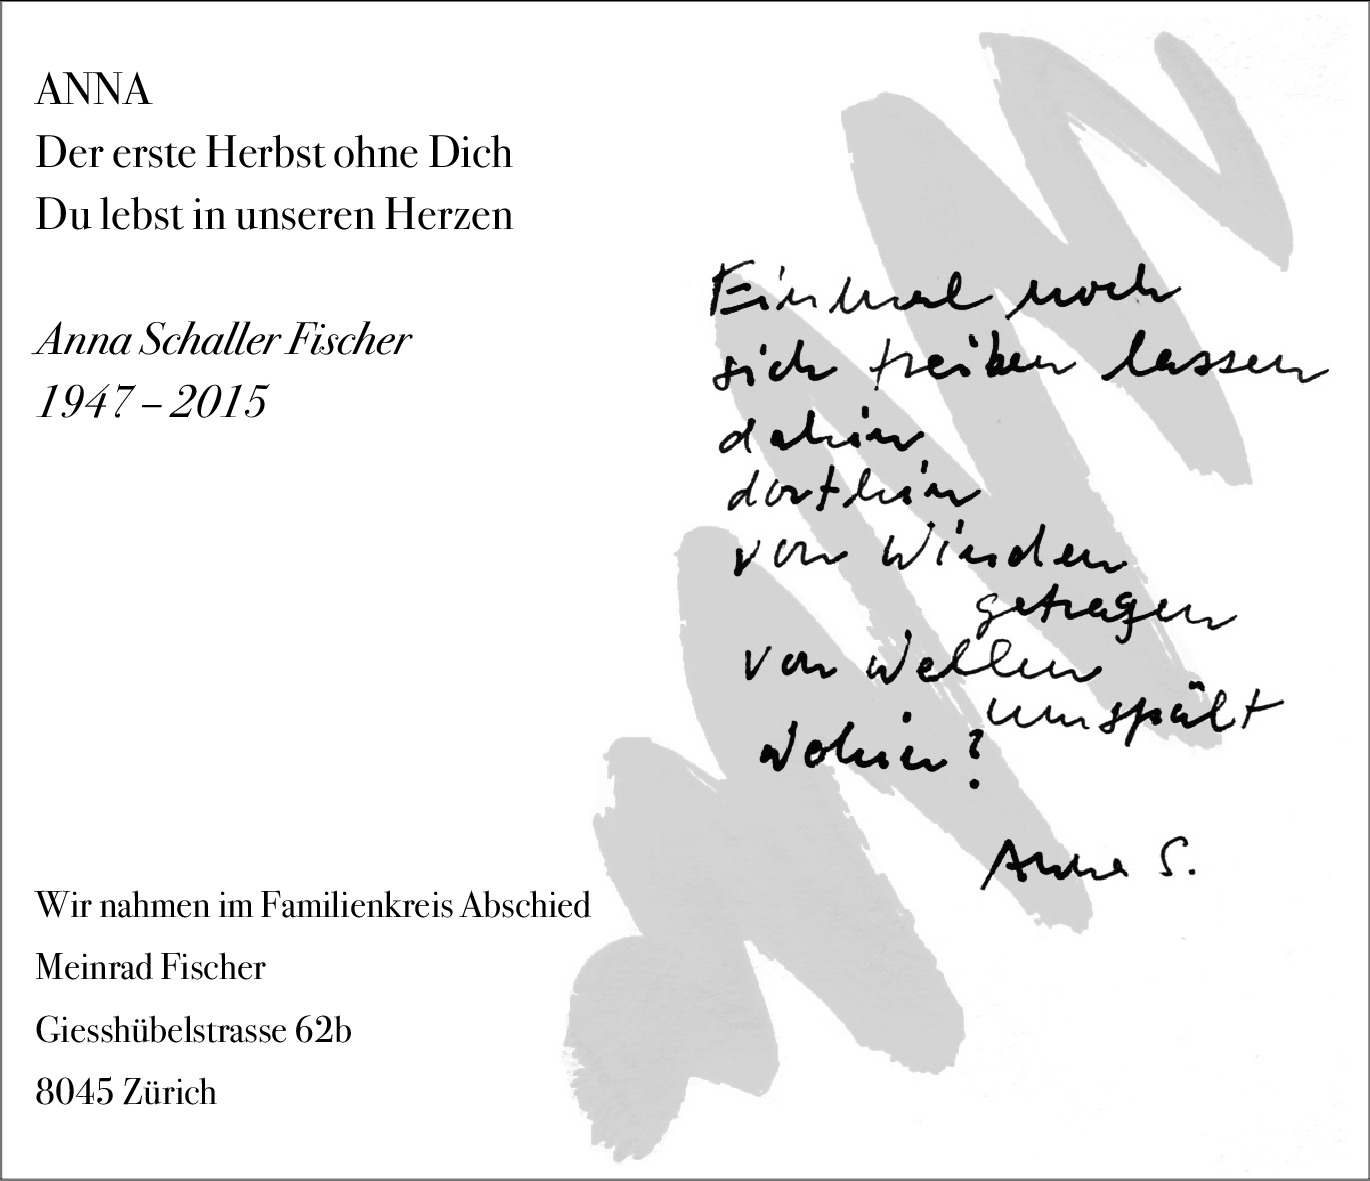 ANNA
Der erste Herbst ohne Dich
Du lebst in unseren Herzen
Anna Schaller Fischer
1947 – 2015
Einmal noch
sich treiben lassen
dahin
dorthin
von Winden
getragen
von Wellen
umspült
Wohin?
Anna S.
Wir nahmen im Familienkreis Abschied
Meinrad Fischer
Giesshübelstrasse 62b
8045 Zürich